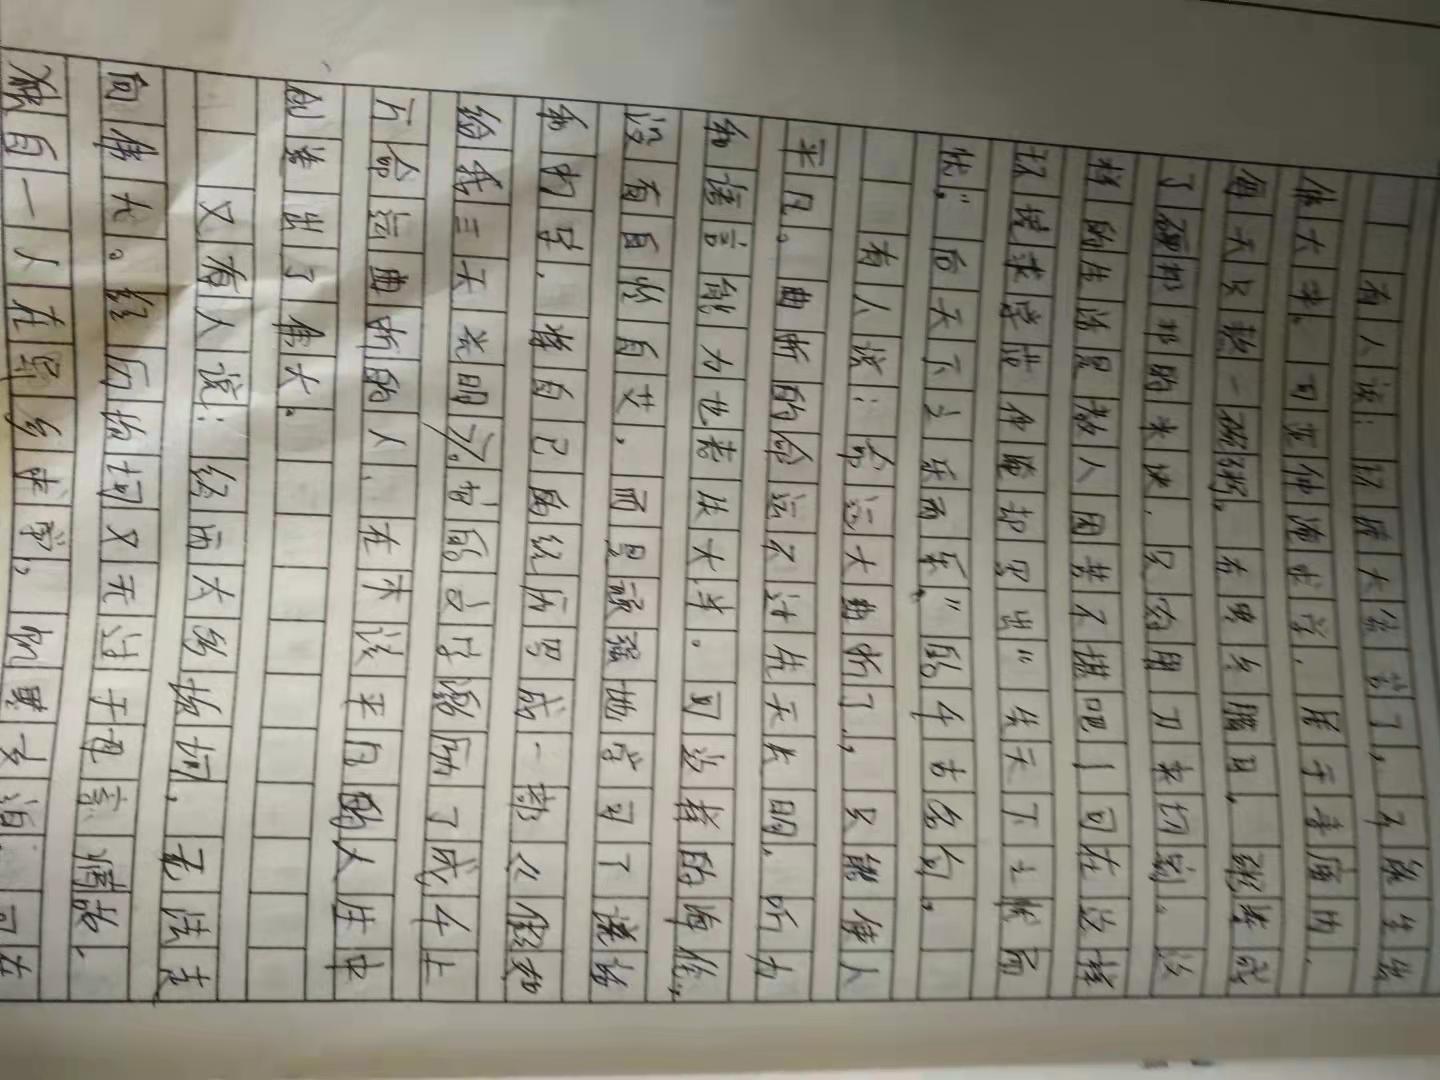 有人说:环境太恶劣了,不能生出
伟大来。可范仲淹求学,居于寺庙内,
每天只熬一碗粥。粥凝成
了硬邦邦的米块,只having用刀来切割。这
样的生活是教人困苦不堪吧!可在这样
环境求学他却写出"先天下之忧而
忧,后天下之乐而乐"的千古名句。
有人说:命运太曲折了,只能使人
平凡。曲折的命运不过先天失明,听力
和语言能力也丧失大半。可这样的海伦,
没有自怨自艾,而是顽强地学习了说话
和书写,将自己的经历写成一部《假如
给我三天光明》。她的了成千上
万命运曲折的人,在不该平凡的人生中
创造出了伟大。
又有人说:经历太多坎坷,无法走
向伟大。经历坎坷又无过于
独自一人在异乡求学,饥寒交迫,可在